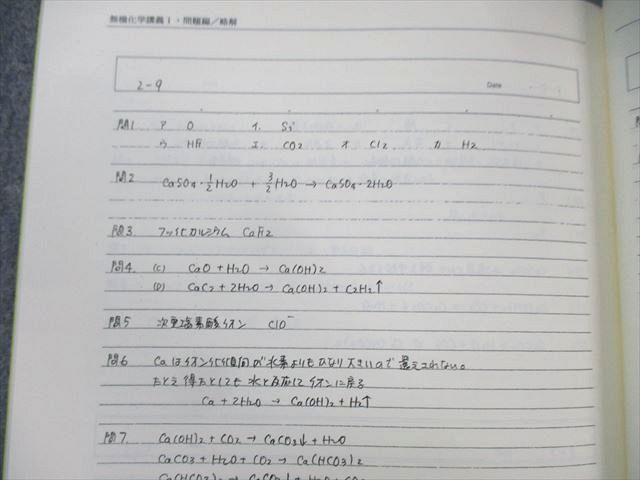 無機化学講義Ⅰ・問題編／略解
2-9 Date
問1 ア O イ. Si
ウ HF エ. CO2 オ Cl2 カ H2
問2 CaSO4・1/2H2O + 3/2H2O → CaSO4・2H2O
問3. フッ化カルシウム CaF2
問4. (C) CaO + H2O → Ca(OH)2
(D) CaC2 + 2H2O → Ca(OH)2 + C2H2↑
問5 次亜塩素酸イオン ClO⁻
問6 Caはイオン化傾向が水素よりもかなり大きいので還元されない。
たとえ得たとしても水と反応してイオンに戻る
Ca + 2H2O → Ca(OH)2 + H2↑
問7. Ca(OH)2 + CO2 → CaCO3↓ + H2O
CaCO3 + H2O + CO2 → Ca(HCO3)2
Ca(HCO3)2 → CaCO3↓ + H2O + CO2